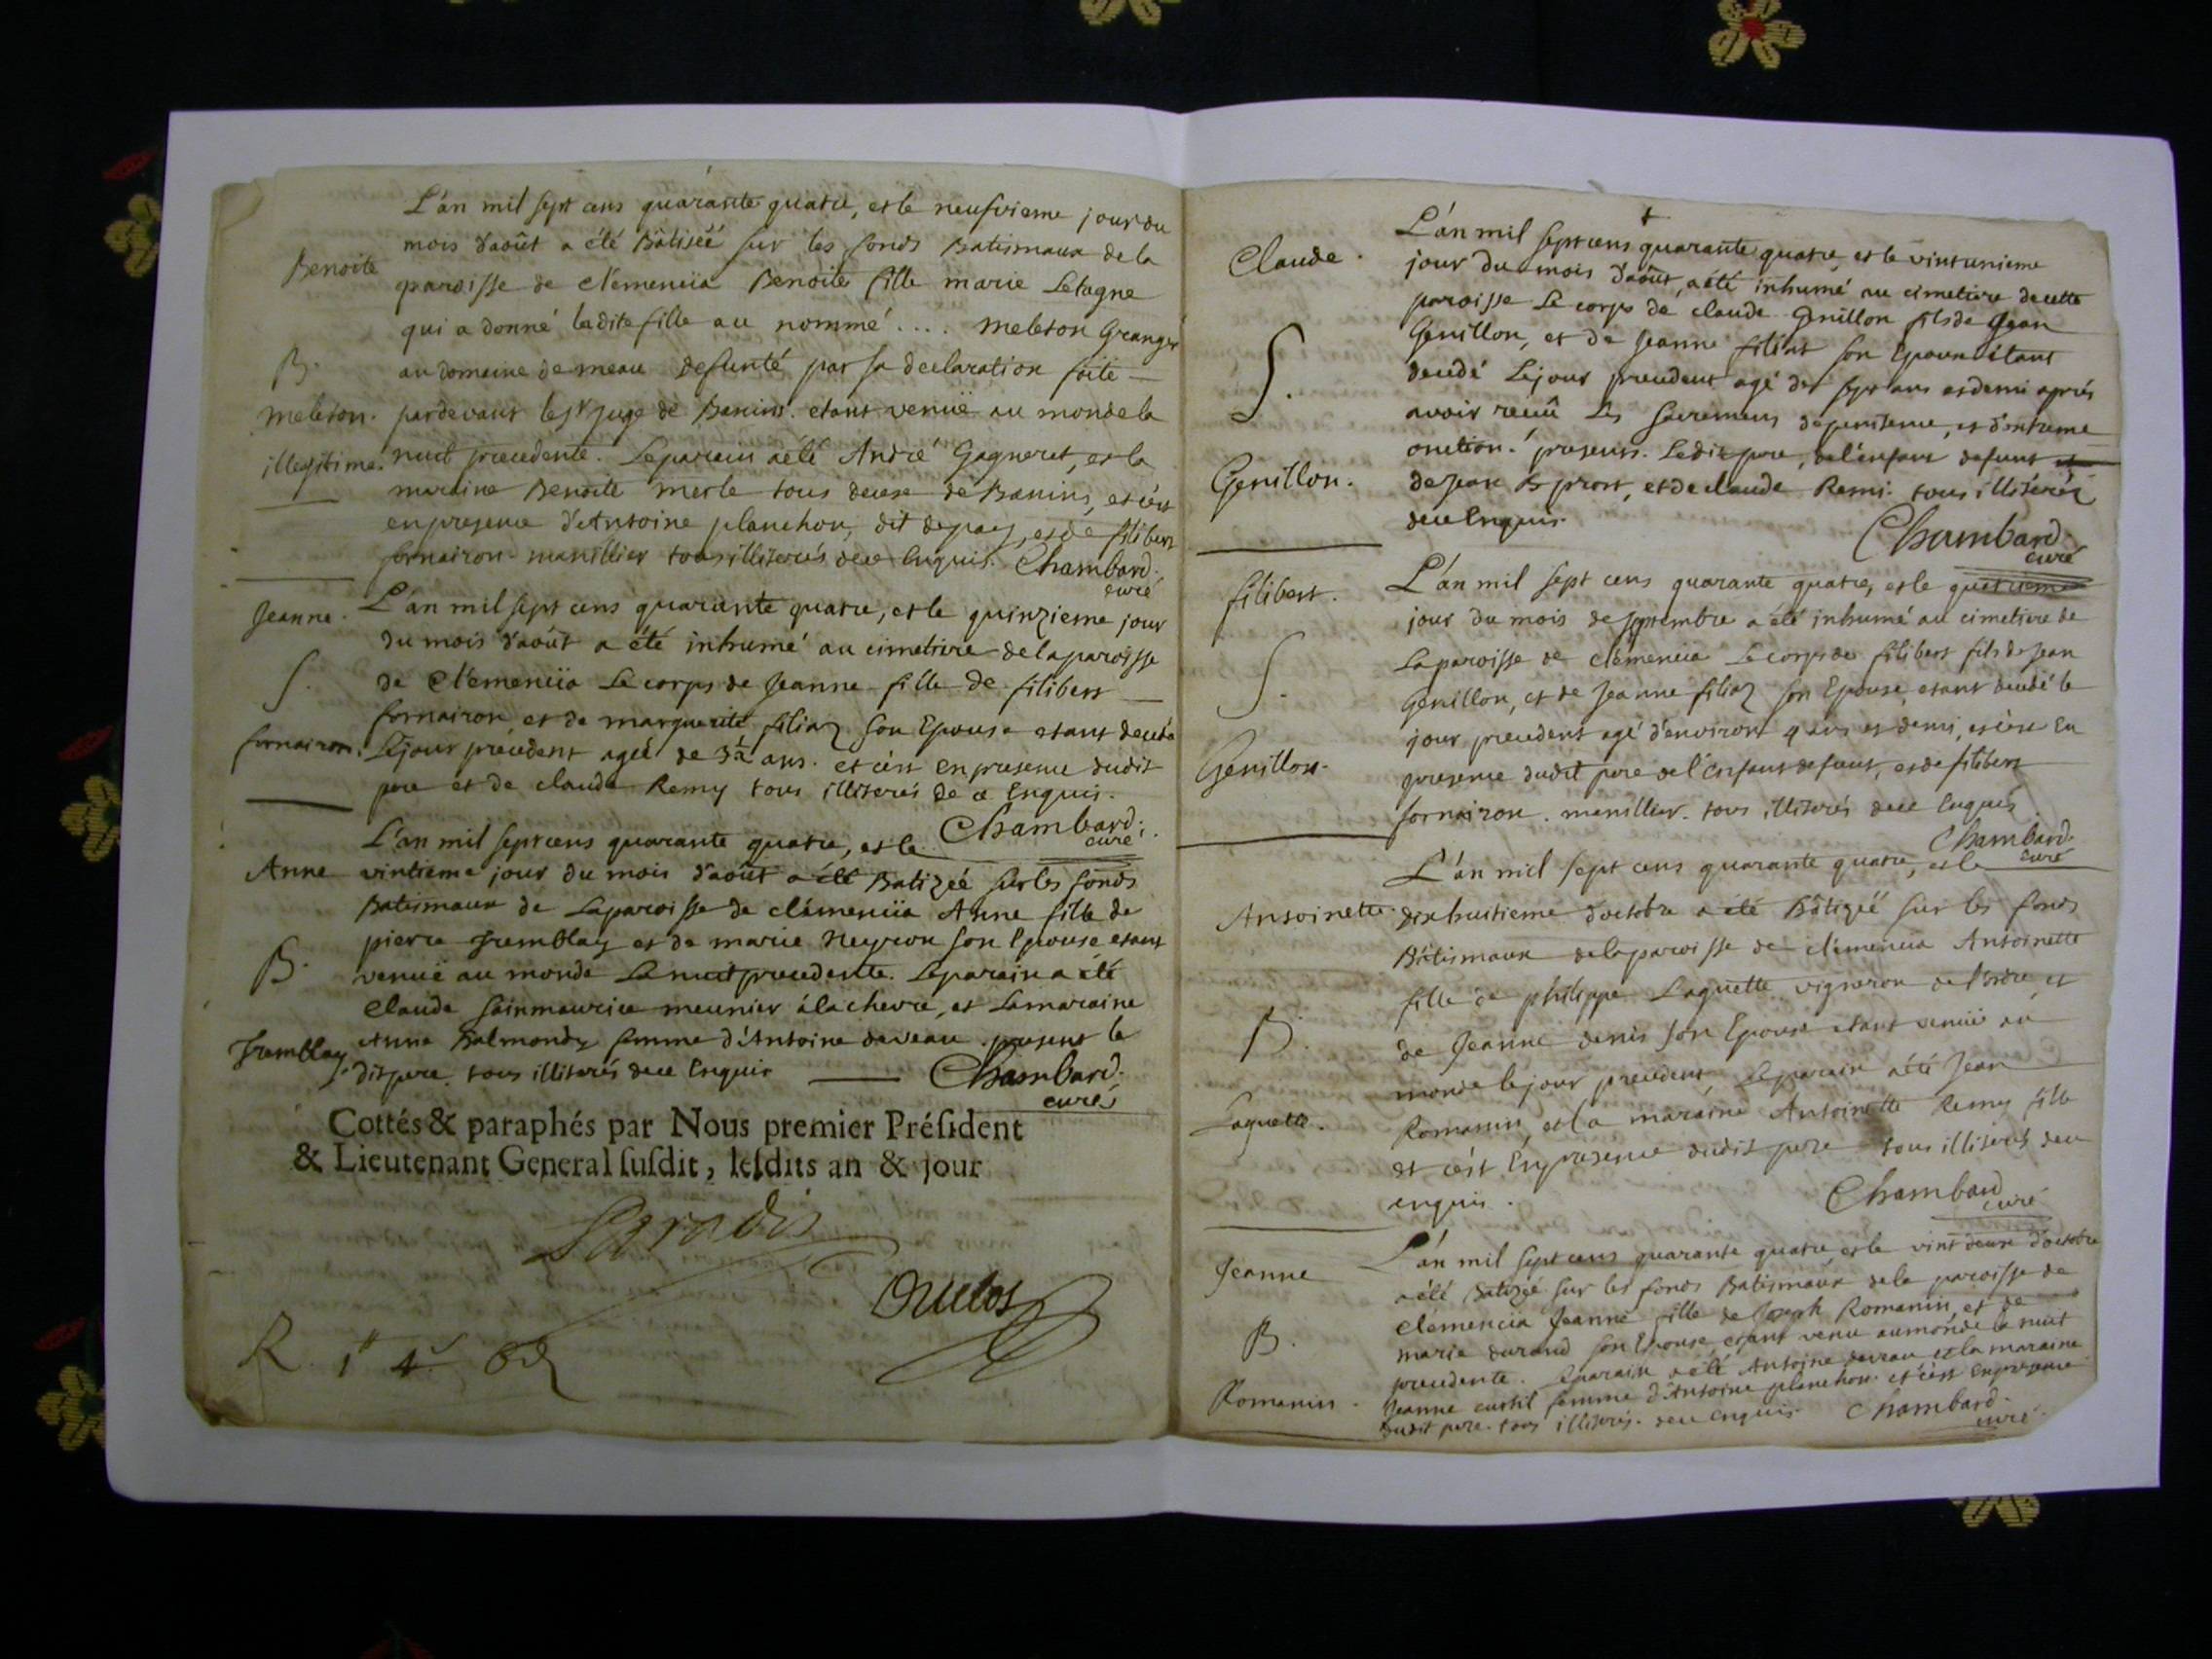 L'án mil sept cens quarante quatre, et le neufvieme jour du
mois d'août a été Bâtiséé sur les fonds Batismaux de la
Benoite
paroisse de clémencia Benoite fille marie Letagne
qui a donné ladite fille au nommé .... meleton Granger
B.
au domaine de meau défunté par sa declaration faite
meleton. pardevant le sr juge de Banins. etant venuë au monde la
illegitime. nuit precedente. Le parain a été André Gagneret, et la
maraine Benoite merle tous deux de Banins, et c'ést
en presence d'Antoine planchon, dit depay, et de filibert
fornairon manillier tous illiterés de ce Enquis. Chambard.
curé
Jeanne. L'án mil sept cens quarante quatre, et le quinzieme jour
du mois d'août a été inhumé au cimetiere de la paroisse
S.
de Clémencia Le corps de Jeanne fille de filibert
fornairon et de marguerite filiaz son Epouse etant decedé
fornairon. Le jour précédent agéé de 3 1/2 ans. et c'ést en presence dudit
pere et de claude Remy tous illiterés de ce Enquis.
Chambard.
curé
L'án mil sept cens quarante quatre, et le
Anne vintieme jour du mois d'août a été Batizéé sur les fonds
Batismaux de La paroisse de clémencia Anne fille de
pierre Tremblay et de marie neyron son Epouse etant
B.
venuë au monde La nuit precedente. Le parain a été
Claude sainmaurice meunier à la chevre, et La maraine
Anne Balmondy femme d'Antoine deveau. present le
Tremblay. dit pere. tous illiterés de ce Enquis Chambard.
curé
Cottés & paraphés par Nous premier Président
& Lieutenant General susdit, lesdits an & jour
Duclos
R. 1# 4s 8d
L'án mil sept cens quarante quatre, et le vintunieme
Claude.
jour du mois d'août, a été inhumé au cimetiere de cette
paroisse Le corps de claude Genillon fils de Jean
Genillon, et de Jeanne filiat son Epouse étant
S.
decedé Le jour precedent agé de sept ans et demi aprés
avoir reçû Les sacremens de penitence, et d'extreme
onction. presens. Ledit pere, de l'enfant defunt
Genillon.
de Jean B prost, et de claude Remi. tous illiteréz
de ce Enquis.
Chambard.
curé
filibert.
L'án mil sept cens quarante quatre, et le quatrieme
jour du mois de septembre a été inhumé au cimetiere de
S.
La paroisse de clémencia Le corps de filibert fils de Jean
Genillon, et de Jeanne filiaz son Epouse, etant decedé le
jour precedent agé d'environ 4 ans et demi, et c'ést En
Genillon.
presence dudit pere de l'enfant defunt, et de filibert
fornairon. manillier. tous illiterés de ce Enquis
Chambard.
curé
L'án mil sept cens quarante quatre, et le
Antoinette. dixhuitieme d'octobre a été Bâtizéé sur les fonds
Bâtismaux de la paroisse de clémencia Antoinette
fille de philippe Laquette vigneron de et
B.
de Jeanne denis son Epouse etant venuë au
monde le jour precedent, Le parain a été Jean
Laquette.
Romanin, et la maraine Antoinette Remy fille
et c'ést En presence dudit pere tous illiterés de ce
enquis.
Chambard
curé
L'án mil sept cens quarante quatre et le vint deux d'octobre
Jeanne
a été Batizéé sur les fonds Batismaux de la paroisse de
clémencia Jeanne fille de Joseph Romanin, et de
B.
marie durand son Epouse, etant venue au monde la nuit
precedente. Le parain a été Antoine deveau et la maraine
Romanin.
Jeanne curtil femme d'Antoine planchon. et c'ést En presence
dudit pere. tous illiterés. de ce Enquis. Chambard.
curé.